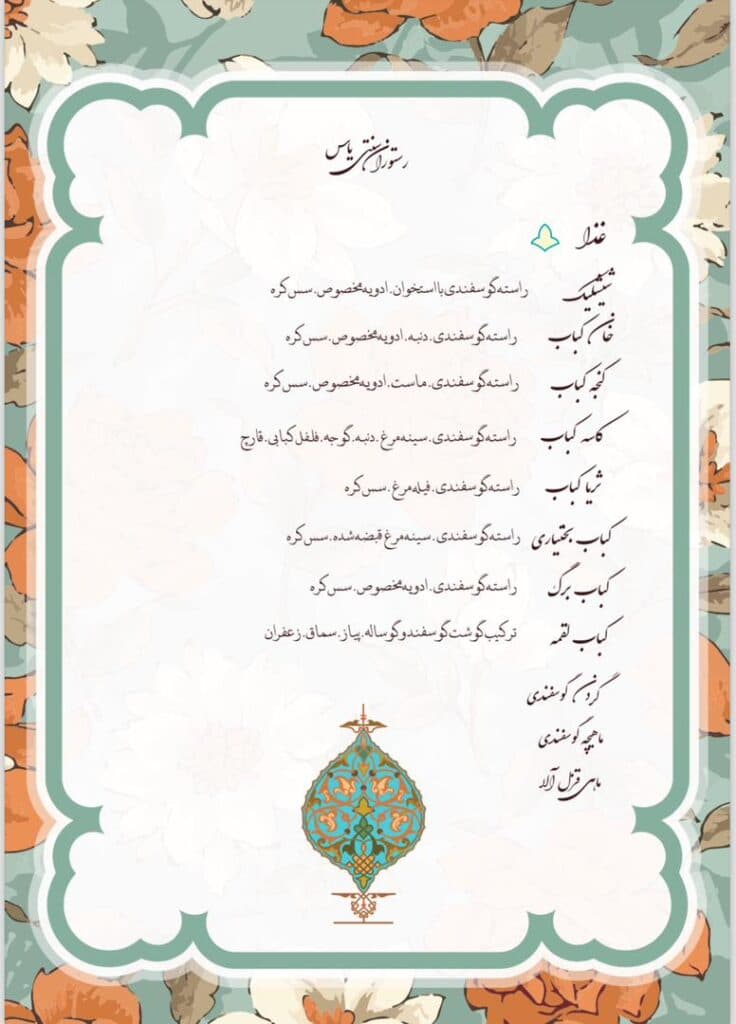 رستوران سنتی یاس
غذا
شیشلیک راسته گوسفندی با استخوان. ادویه مخصوص. سس کره
خان کباب راسته گوسفندی. دنبه. ادویه مخصوص. سس کره
کنجه کباب راسته گوسفندی. ماست. ادویه مخصوص. سس کره
کاسه کباب راسته گوسفندی. سینه مرغ. دنبه. گوجه. فلفل کبابی. قارچ
ثریا کباب راسته گوسفندی. فیله مرغ. سس کره
کباب بختیاری راسته گوسفندی. سینه مرغ قبضه شده. سس کره
کباب برگ راسته گوسفندی. ادویه مخصوص. سس کره
کباب لقمه ترکیب گوشت گوسفند و گوساله. پیاز. سماق. زعفران
گردن گوسفندی
ماهیچه گوسفندی
ماهی قزل آلا